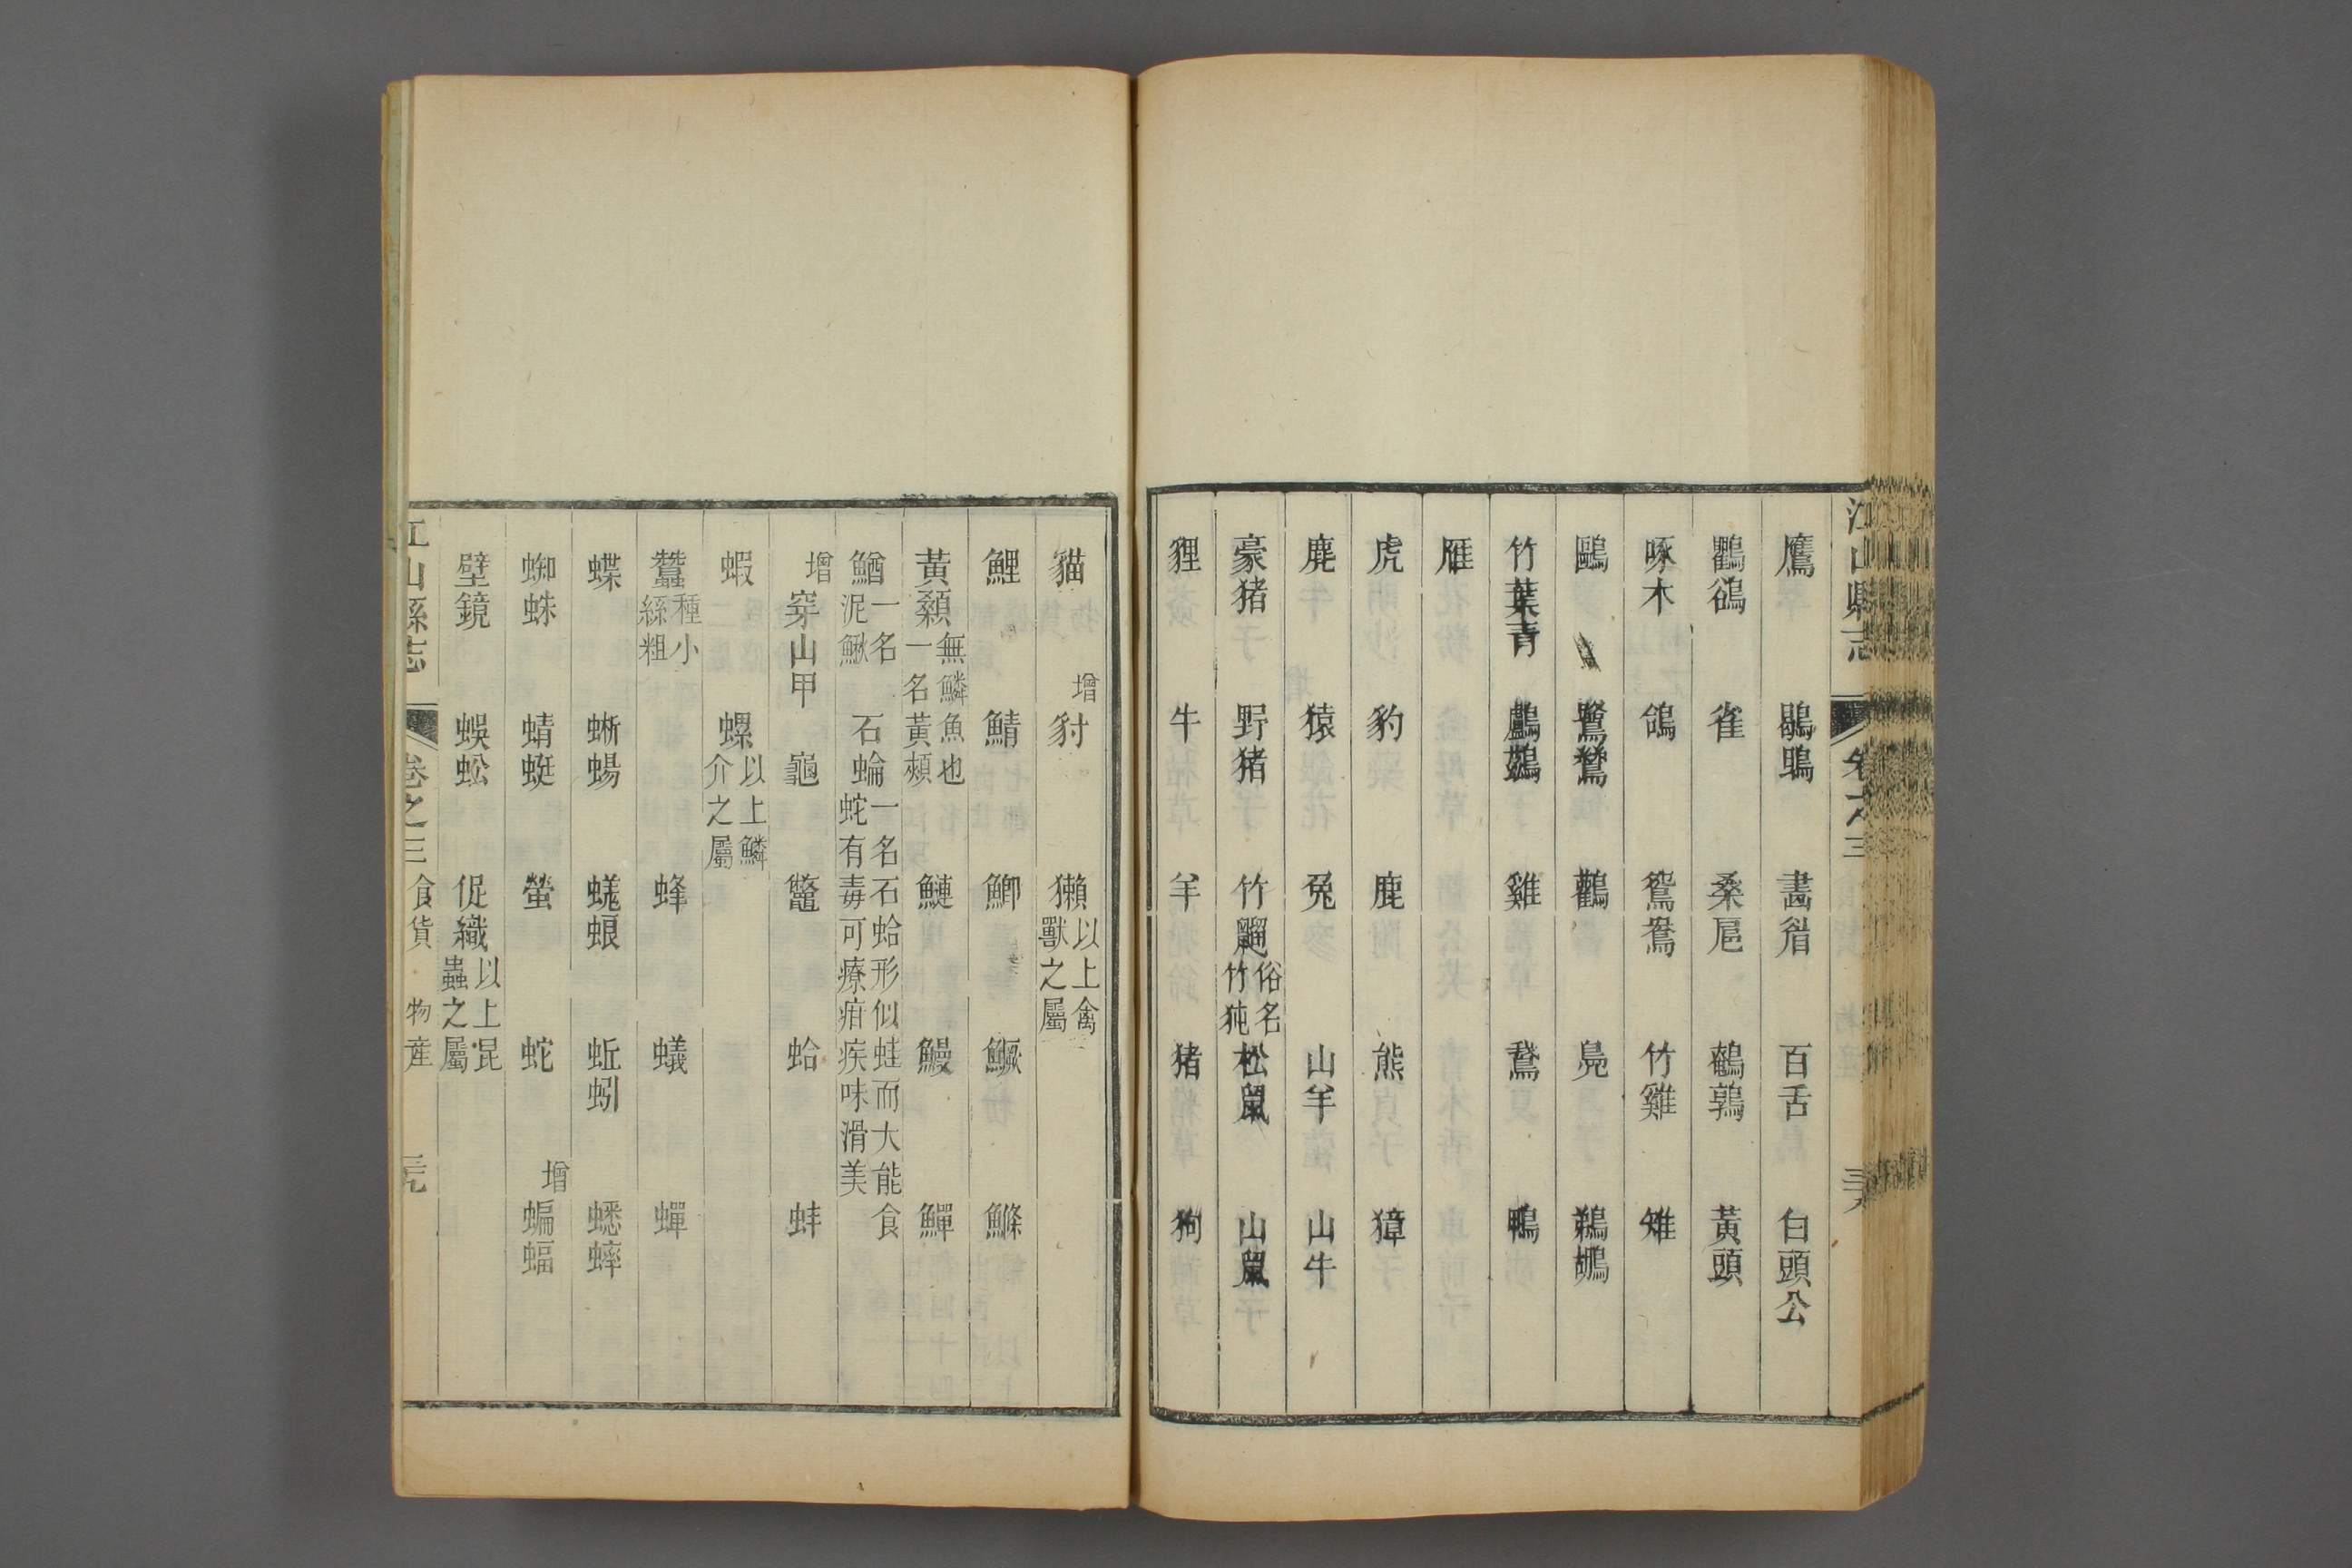 江山縣志 卷之三
鷹 鵰鴠 畵眉 百舌 白頭公
鸜鵒 雀 桑扈 鵪鶉 黃頭
啄木 鴿 鴛鴦 竹雞 雉
鷗 鷺鷥 鸛 鳧 鵜鶘
竹葉青 鸕鷀 雞 鵞 鴨
雁
虎 豹 鹿 熊 獐
麂 猿 兔 山羊 山牛
豪猪 野猪 竹鼺 俗名竹㹠 松鼠 山鼠
狸 牛 羊 猪 狗
貓 增 豺 獺 以上禽獸之屬
鯉 鯖 鯽 鱖 鰷
黃顙 無鱗魚也一名黃頰 鰱 鰻 鱓
鰌 一名泥鰍 石蜦 一名石蛤形似蛙而大能食蛇有毒可療疳疾味滑美
增 穿山甲 龜 鼈 蛤 蚌
蝦 螺 以上鱗介之屬
蠶 種小絲粗 蜂 蟻 蟬
蝶 蜥蜴 蜣蜋 蚯蚓 蟋蟀
蜘蛛 蜻蜓 螢 蛇 增 蝙蝠
壁鏡 蜈蚣 促織 以上昆蟲之屬
江山縣志 卷之三 食貨 物産